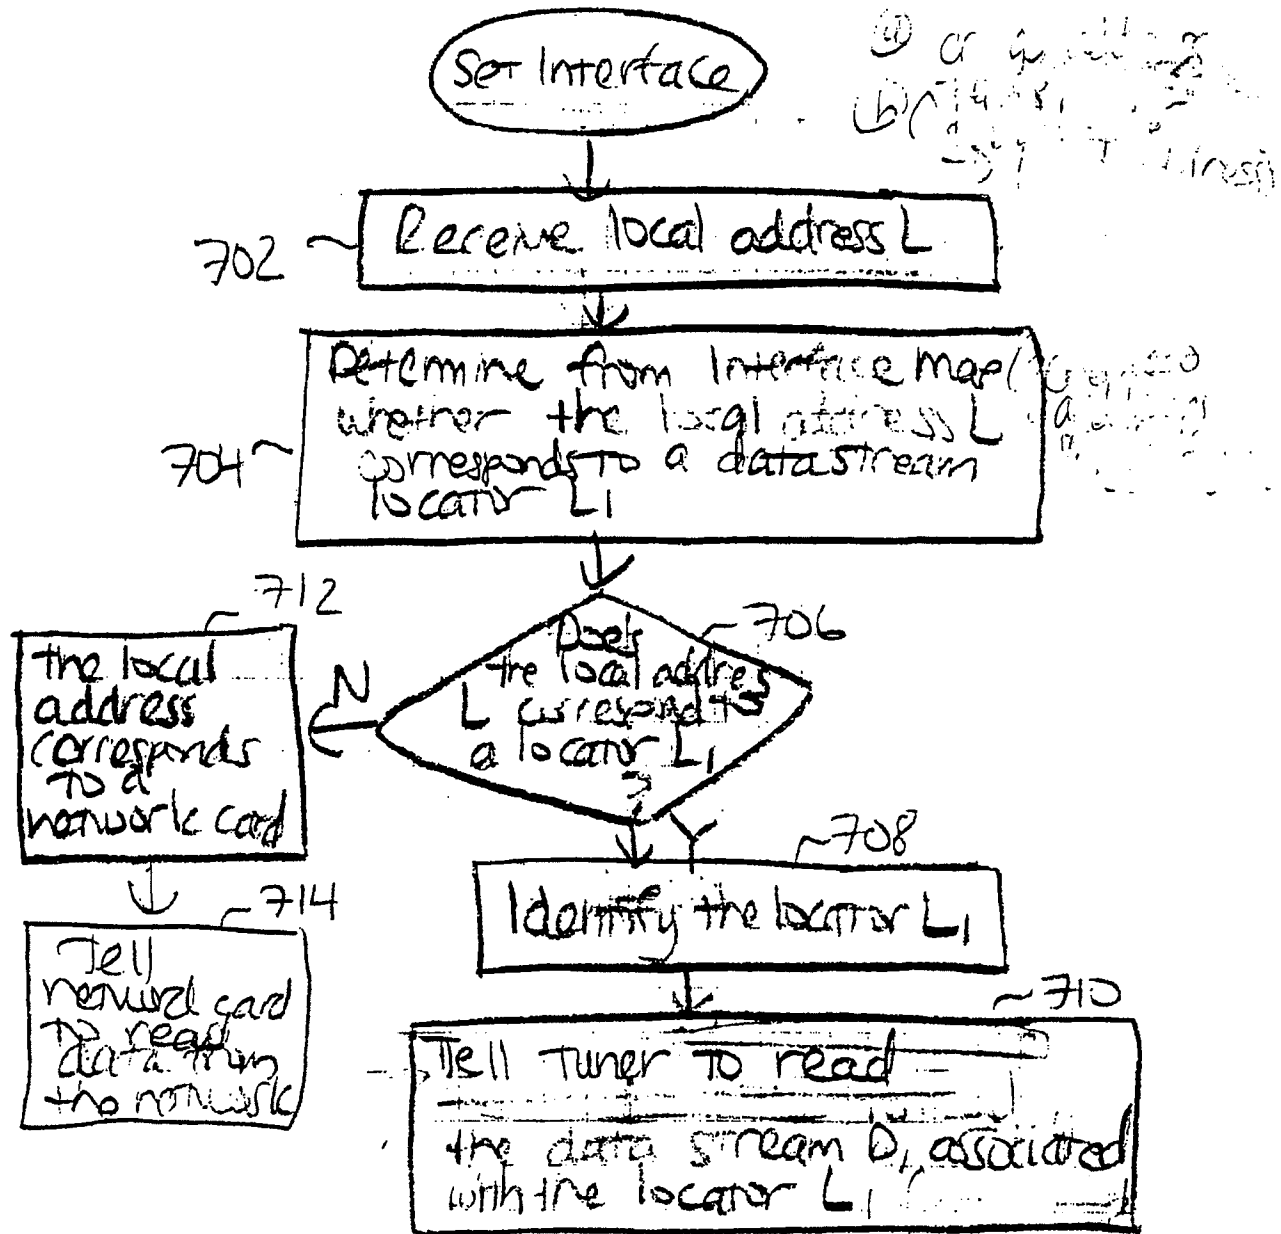 Set Interface
702
Receive local address L
704
Determine from Interface Map
whether the local address L
corresponds to a data stream
locator L1
706
Does
the local address
L correspond to
a locator L1
?
N
712
the local
address
corresponds
to a
network card
714
Tell
network card
to read
data from
the network
Y
708
Identify the locator L1
710
Tell Tuner to read
the data stream D1 associated
with the locator L1